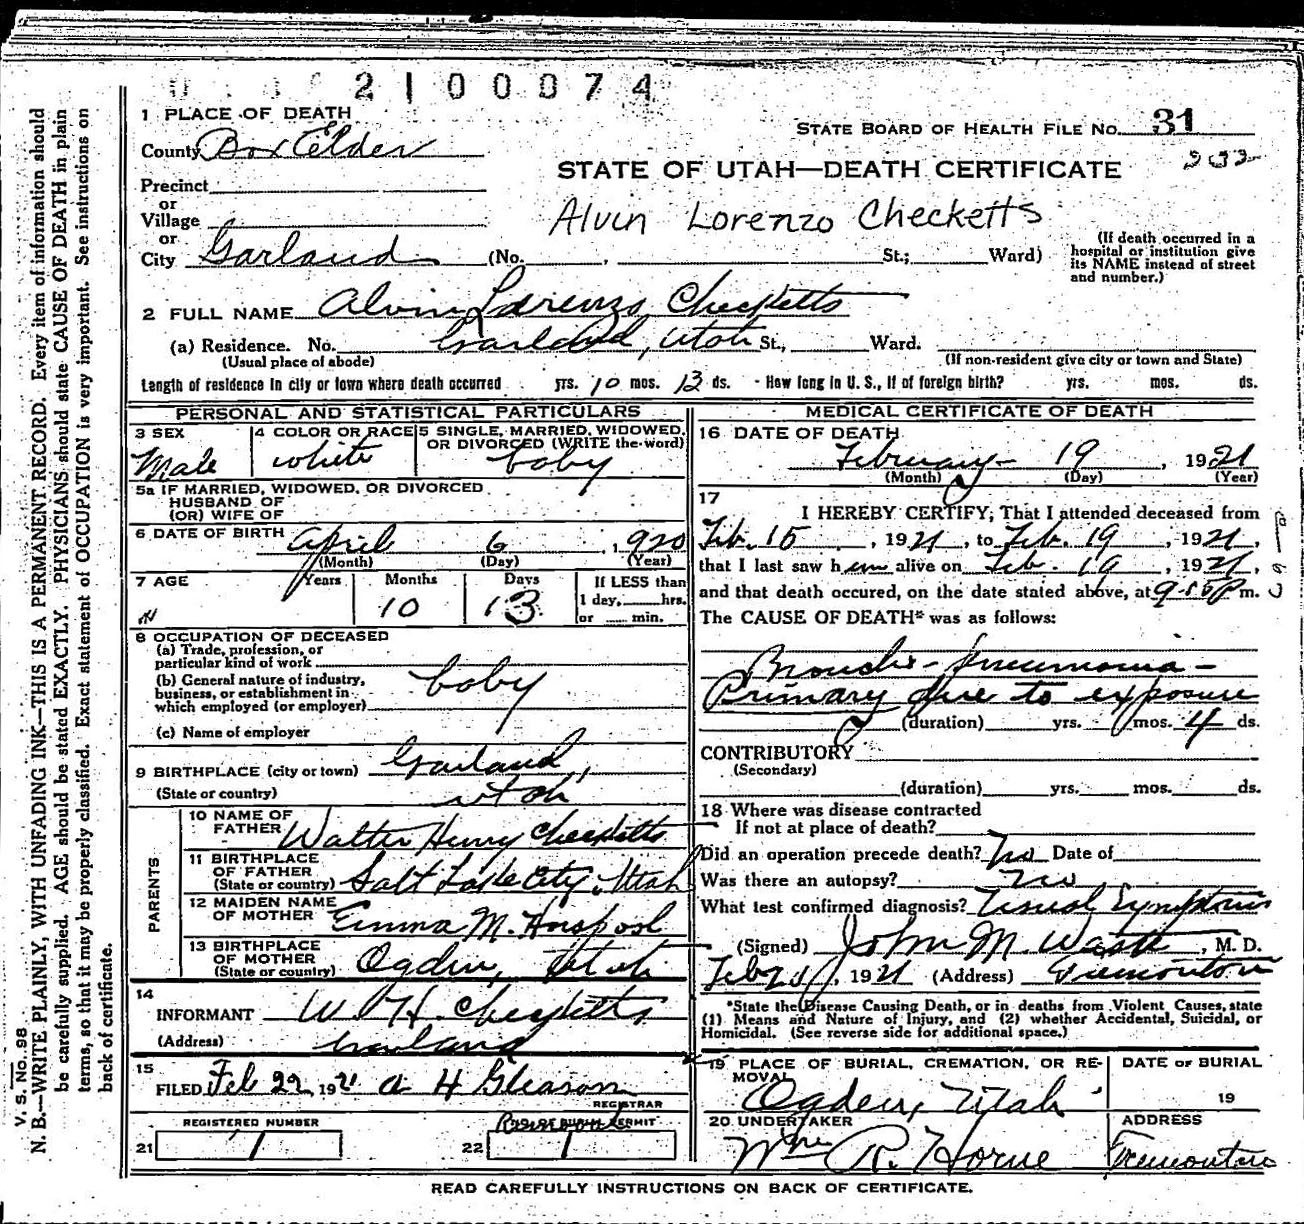 2100074
1 PLACE OF DEATH
STATE BOARD OF HEALTH FILE NO. 31
County Box Elder
232
STATE OF UTAH—DEATH CERTIFICATE
Precinct
or
Village
Alvin Lorenzo Checketts
or
City Garland (No. , St.; Ward)
(If death occurred in a hospital or institution give its NAME instead of street and number.)
2 FULL NAME Alvin Lorenzo Checketts
(a) Residence. No. Garland, Utah St., Ward.
(Usual place of abode)
(If non-resident give city or town and State)
Length of residence in city or town where death occurred yrs. 10 mos. 13 ds. - How long in U. S., if of foreign birth? yrs. mos. ds.
PERSONAL AND STATISTICAL PARTICULARS
3 SEX
Male
4 COLOR OR RACE
white
5 SINGLE, MARRIED, WIDOWED, OR DIVORCED (WRITE the word)
baby
5a IF MARRIED, WIDOWED, OR DIVORCED
HUSBAND OF
(OR) WIFE OF
6 DATE OF BIRTH April 6, 1920
(Month) (Day) (Year)
7 AGE
Years Months Days
10 13
If LESS than
1 day, hrs.
or min.
8 OCCUPATION OF DECEASED
(a) Trade, profession, or
particular kind of work
(b) General nature of industry,
business, or establishment in
which employed (or employer) baby
(c) Name of employer
9 BIRTHPLACE (city or town) Garland,
(State or country) Utah
PARENTS
10 NAME OF FATHER Walter Henry Checketts
11 BIRTHPLACE OF FATHER
(State or country) Salt Lake City, Utah
12 MAIDEN NAME OF MOTHER Emma M. Horspool
13 BIRTHPLACE OF MOTHER
(State or country) Ogden, Utah
14
INFORMANT W. H. Checketts
(Address) Garland
15
FILED Feb 22, 1921 A H Gleason
REGISTRAR
REGISTERED NUMBER
21 1
22 1
MEDICAL CERTIFICATE OF DEATH
16 DATE OF DEATH
February 19, 1921
(Month) (Day) (Year)
17
I HEREBY CERTIFY, That I attended deceased from
Feb. 15, 1921, to Feb. 19, 1921,
that I last saw him alive on Feb. 19, 1921,
and that death occured, on the date stated above, at 9:50 P m.
The CAUSE OF DEATH* was as follows:
Broncho-Pneumonia-
Primary due to exposure
(duration) yrs. mos. 4 ds.
CONTRIBUTORY
(Secondary)
(duration) yrs. mos. ds.
18 Where was disease contracted
If not at place of death?
Did an operation precede death? No Date of
Was there an autopsy? No
What test confirmed diagnosis? Usual Symptoms
(Signed) John M. , M. D.
Feb 20, 1921 (Address) Tremonton
*State the Disease Causing Death, or in deaths from Violent Causes, state
(1) Means and Nature of Injury, and (2) whether Accidental, Suicidal, or
Homicidal. (See reverse side for additional space.)
19 PLACE OF BURIAL, CREMATION, OR REMOVAL
Ogden, Utah
DATE OF BURIAL
19
20 UNDERTAKER
Wm R. Horne
ADDRESS
Tremonton
READ CAREFULLY INSTRUCTIONS ON BACK OF CERTIFICATE.
V. S. No. 98
N. B.—WRITE PLAINLY, WITH UNFADING INK—THIS IS A PERMANENT RECORD. Every item of information should
be carefully supplied. AGE should be stated EXACTLY. PHYSICIANS should state CAUSE OF DEATH in plain
terms, so that it may be properly classified. Exact statement of OCCUPATION is very important. See instructions on
back of certificate.